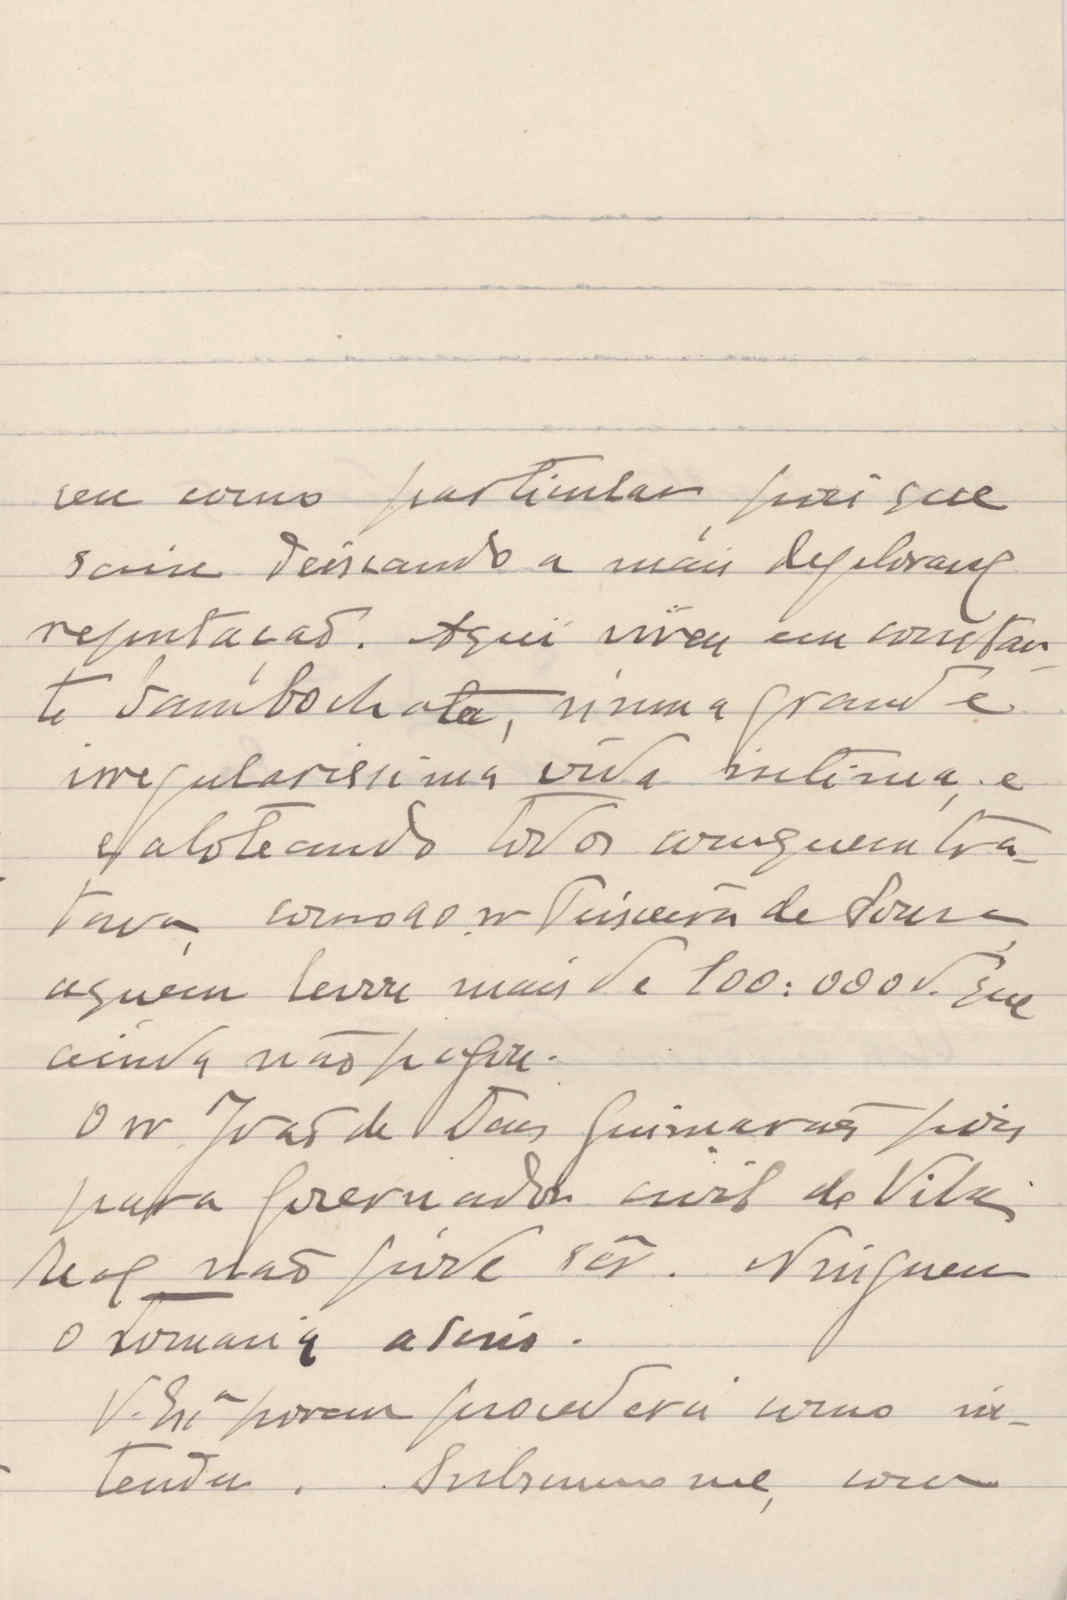 seu como particular, pois que
saiu deixando a mais deploravel
reputação. Aqui viveu em constan-
te bambochata, numa grande
irregularissima vida intima, e
caloteando todos com quem tra-
tava, como ao sr Teixeira de Sousa,
a quem levou mais de 100:000 que
ainda não pagou.
O sr João de Deus Guimarães pois
para governador civil de Vila
Real não póde sêr. Ninguem
o tomaria a serio.
V. Exª porem procederá como in-
tender. Subscrevo-me, com